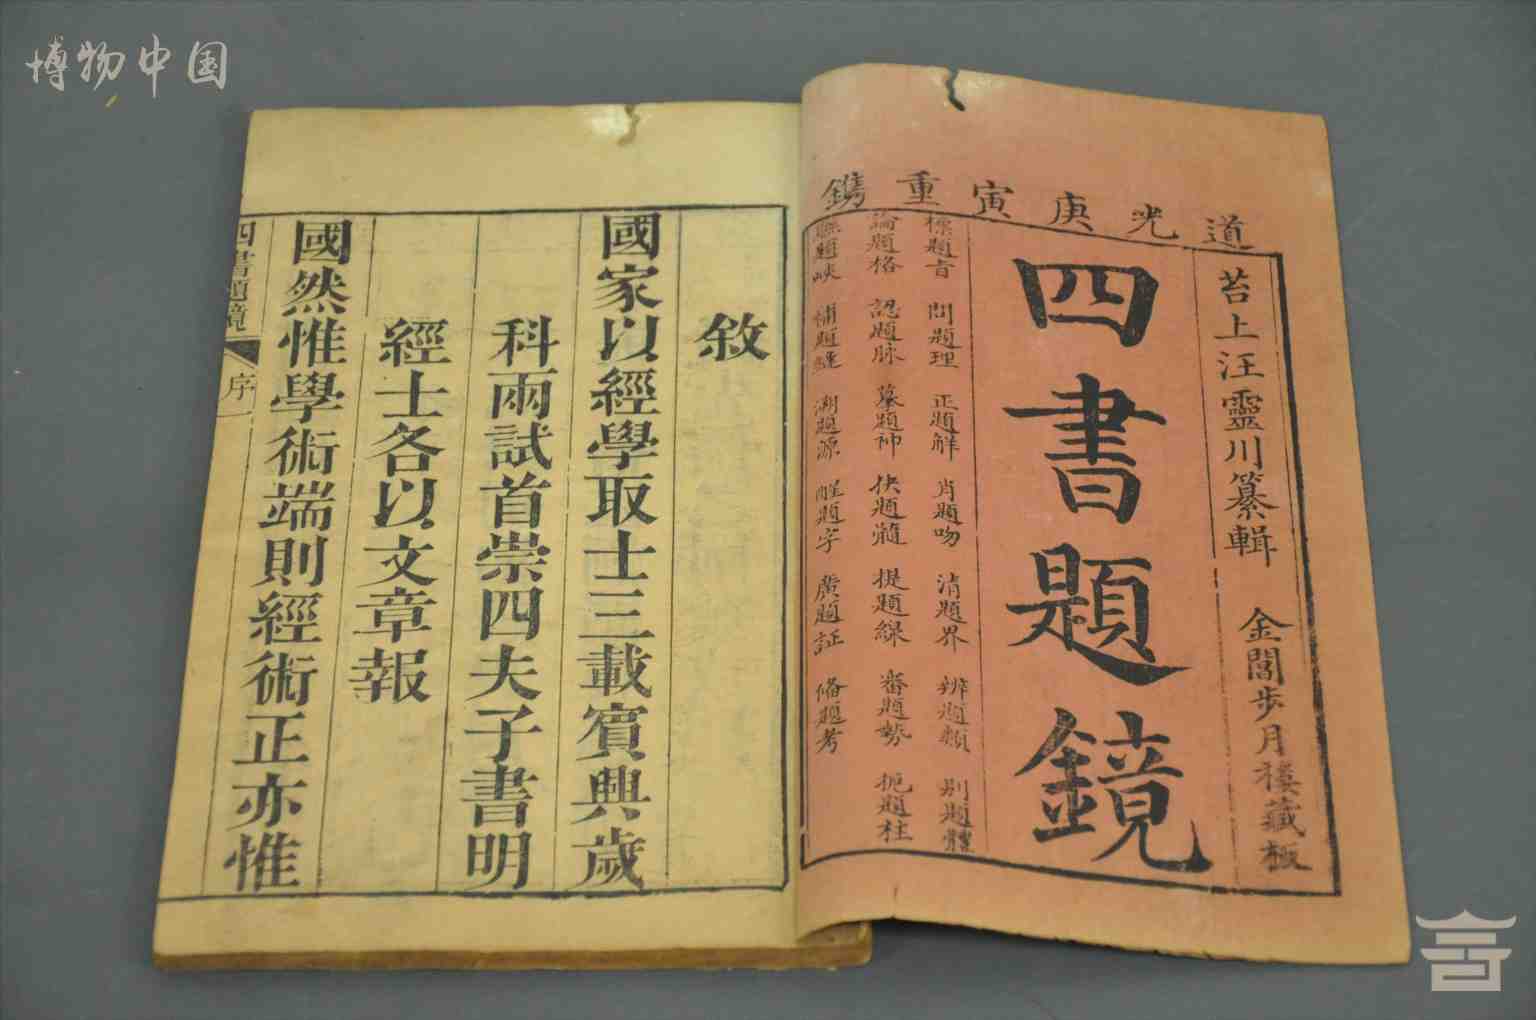 博物中国
道光庚寅重鐫
苕上汪靈川纂輯
金閶步月樓藏板
四書題鏡
標題旨 問題理 正題解 肖題吻 清題界 辨題類 別題體
論題格 認題脉 摹題神 抉題髓 提題綠 審題勢 扼題柱
聯題峽 補題縫 溯題源 醒題字 廣題証 脩題考
敘
國家以經學取士三載賓興歲
科兩試首崇四夫子書明
經士各以文章報
國然惟學術端則經術正亦惟
四書題鏡 序 一